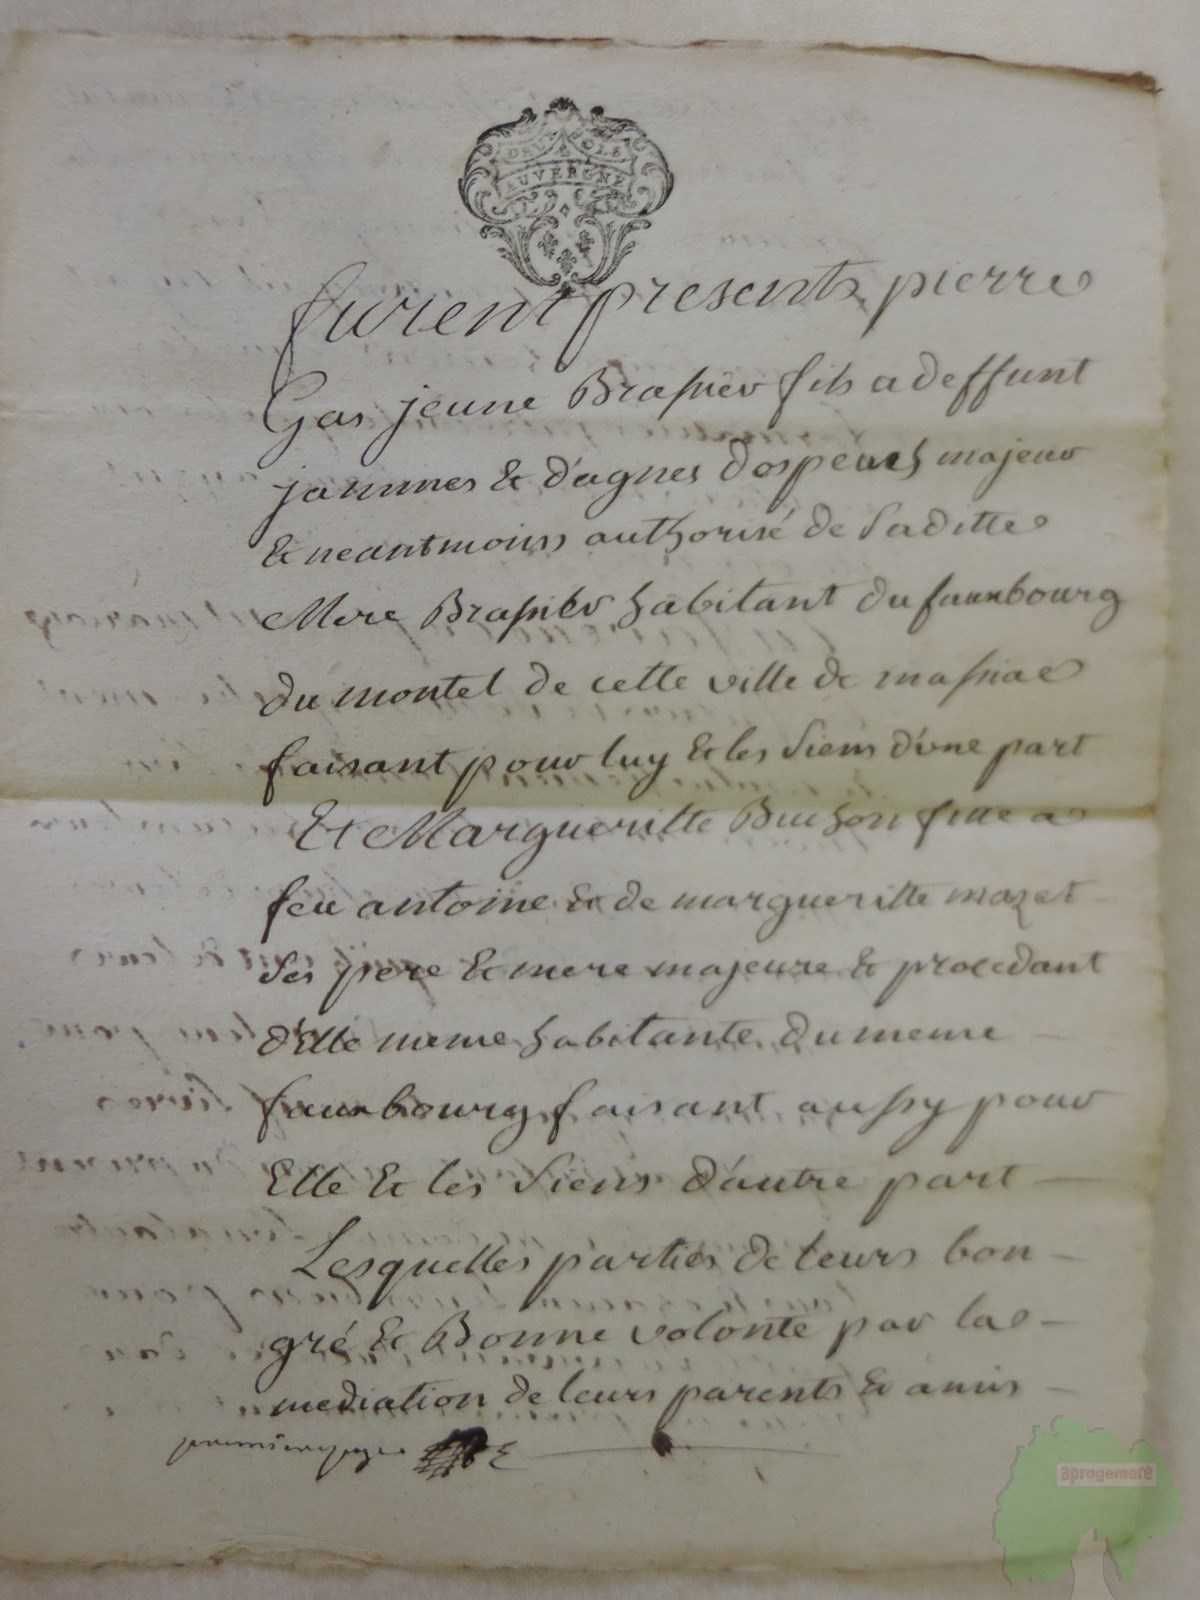 DEUX SOLS
AUVERGNE
furent presents pierre
Gas jeune Brassier fils a deffunt
jammes & d'agnes despeuch majeur
& neantmoins authorisé de Saditte
Mere Brassiér habitant du fauxbourg
du montel de cette ville de massiac
faisant pour luy & les Siens d'une part
Et Margueritte Buchon fille a
feu antoine & de margueritte mazet
Ses pere & mere majeure & procedant
d'elle meme habitante du meme
fauxbourg faisant aussy pour
Elle & les Siens d'autre part
Lesquelles parties de leurs bon
gré & Bonne volonté par la
mediation de leurs parents & amis
premiere page
aprogemere